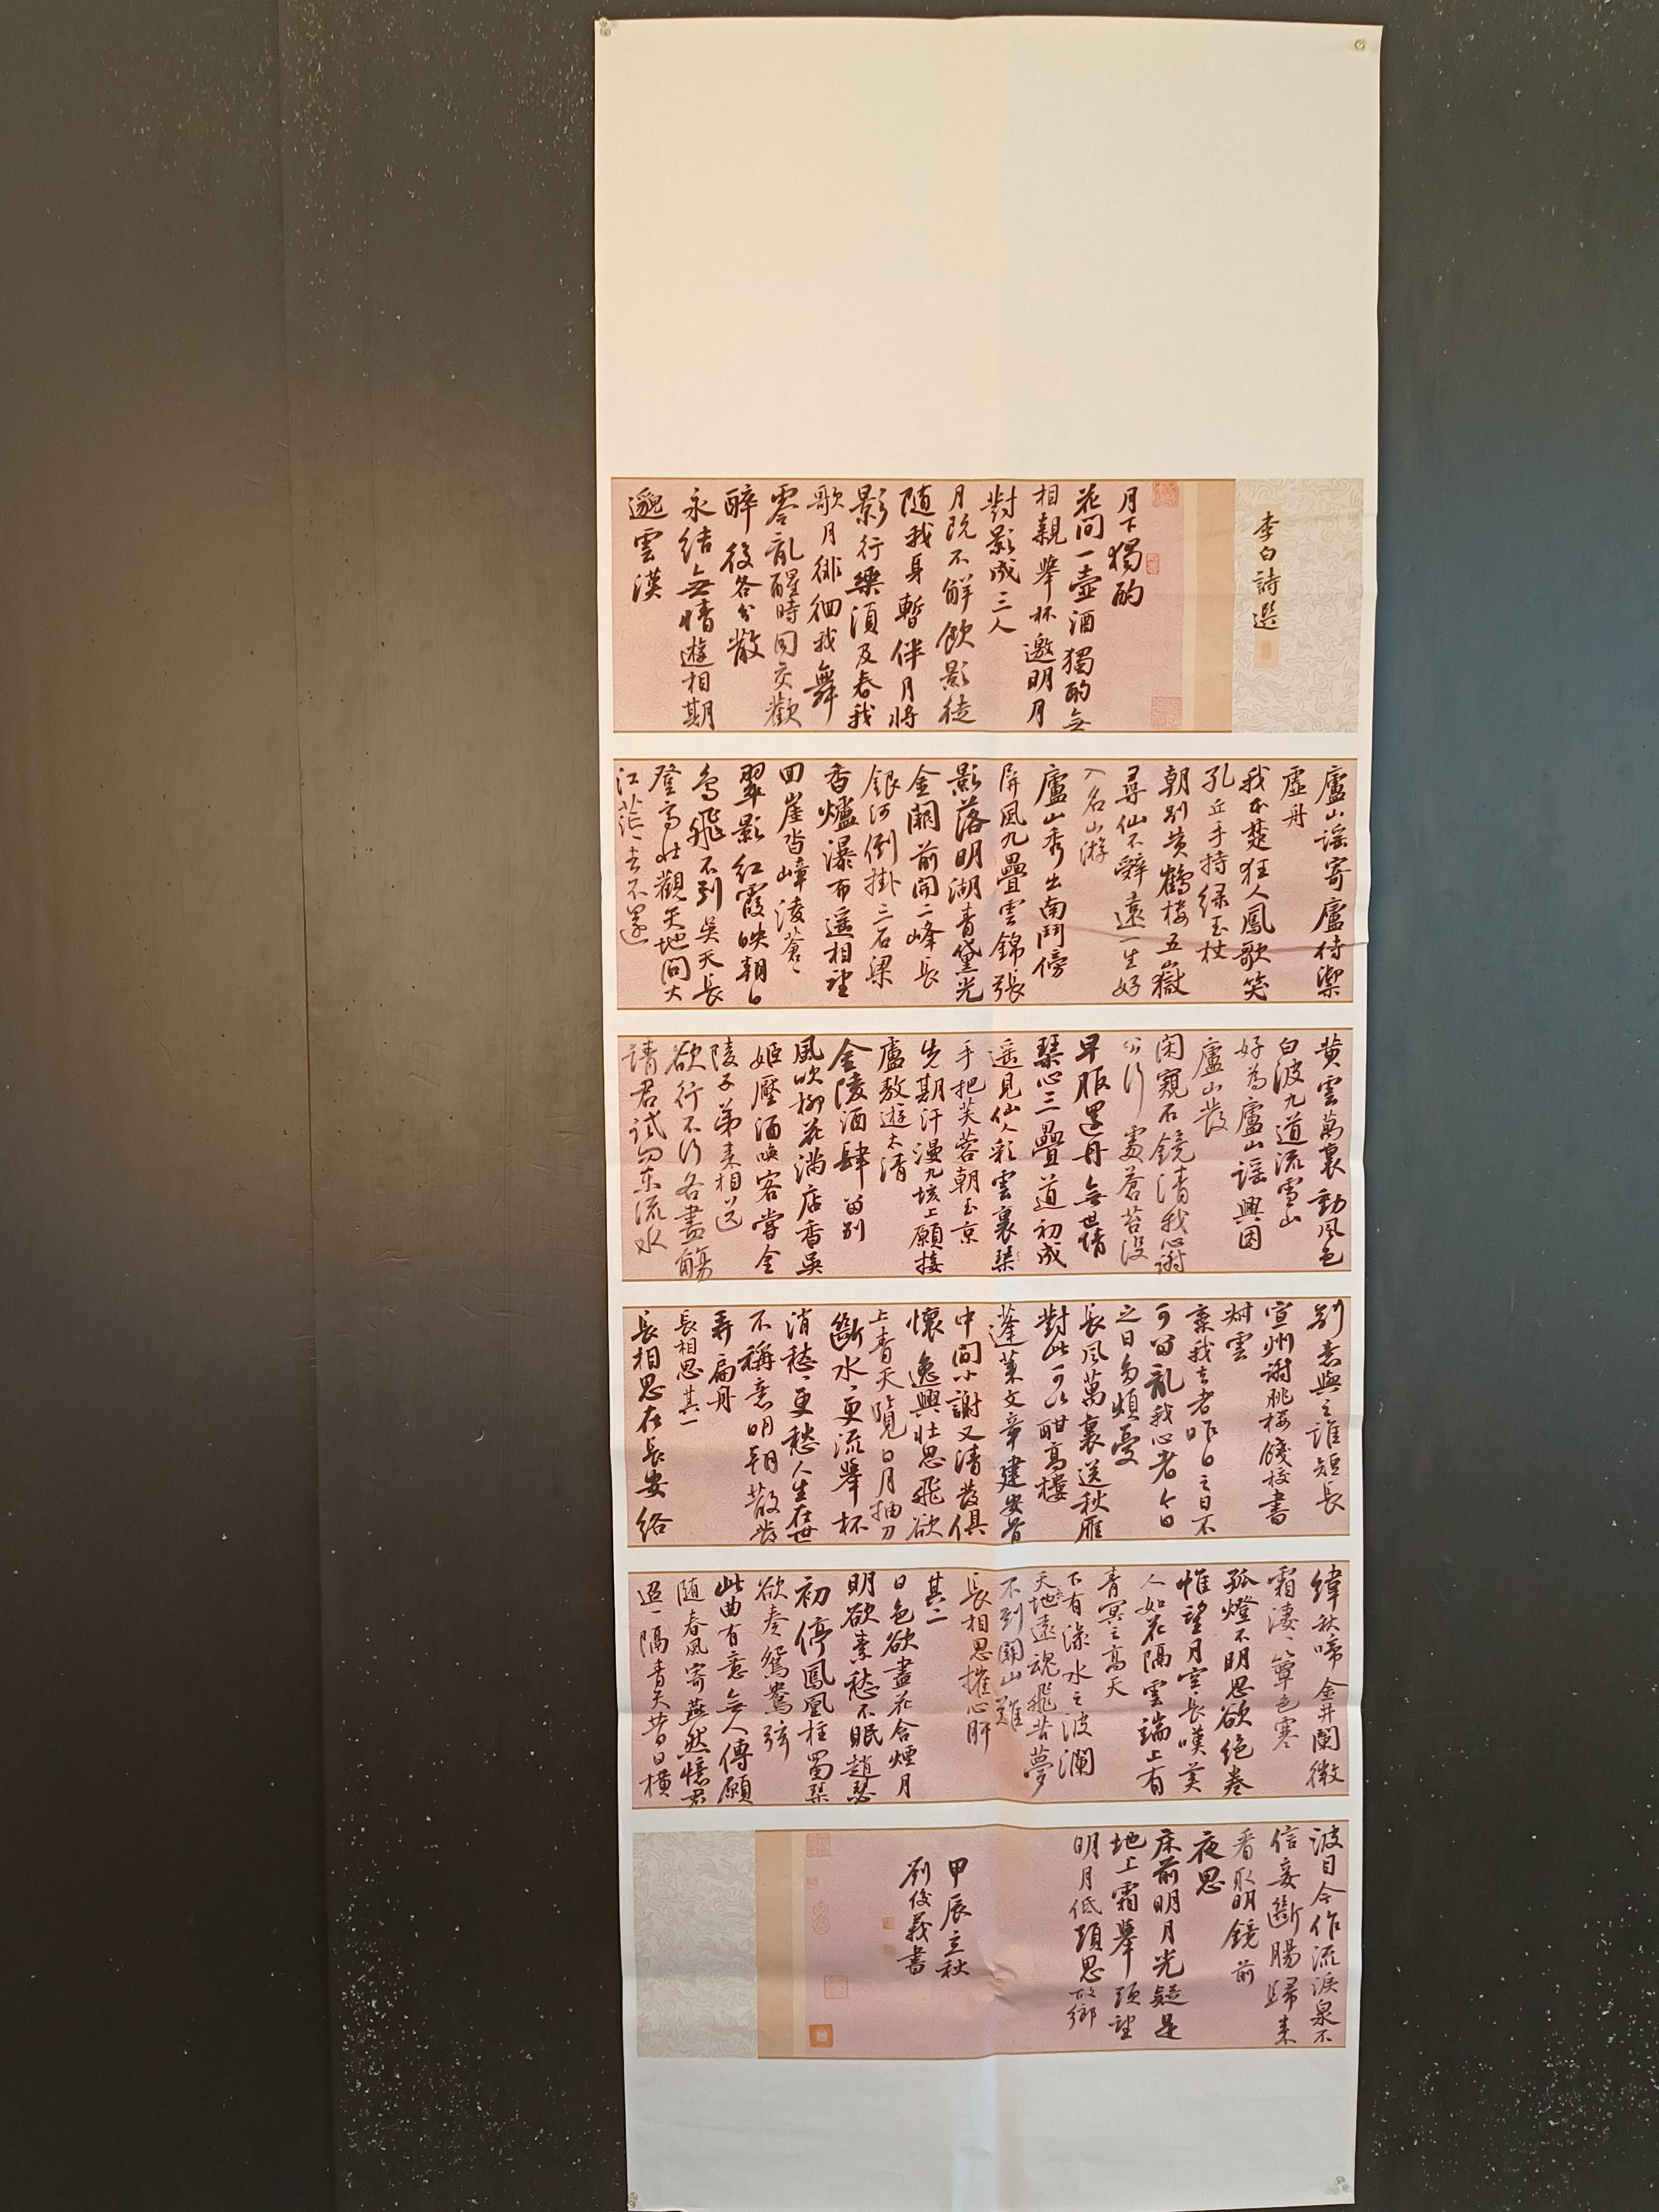 李白詩選
月下獨酌
花间一壺酒獨酌無
相親舉杯邀明月
對影成三人
月既不解飲影徒
随我身暫伴月将
影行樂須及春我
歌月徘徊我舞
零亂醒時同交歡
醉後各分散
永結無情遊相期
邈雲漢
廬山謡寄廬侍禦
虚舟
我本楚狂人鳳歌笑
孔丘手持绿玉杖
朝别黄鶴楼五嶽
尋仙不辭遠一生好
入名山游
廬山秀出南鬥傍
屏風九疊雲錦張
影落明湖青黛光
金闕前開二峰長
銀河倒掛三石梁
香爐瀑布遥相望
回崖沓嶂淩蒼〻
翠影红霞映朝日
鳥飛不到吳天長
登高壮觀天地间大
江茫〻去不還
黄雲萬裏動風色
白波九道流雪山
好為廬山謡興因
廬山發
闲窺石鏡清我心謝
公行處蒼苔没
早服還丹無世情
琴心三疊道初成
遥見仙人彩雲裏
手把芙蓉朝玉京
先期汗漫九垓上願接
廬敖遊太清
金陵酒肆留别
風吹柳花满店香吳
姬壓酒唤客嘗金
陵子弟来相送
欲行不行各盡觴
請君试问东流水
别意與之誰短長
宣州謝朓楼餞校書
叔雲
棄我去者昨日之日不
可留亂我心者今日
之日多煩憂
長风萬裏送秋雁
對此可以酣高樓
蓬萊文章建安骨
中间小謝又清發俱
懷逸興壮思飛欲
上青天覽日月抽刀
斷水〻更流舉杯
消愁〻更愁人生在世
不稱意明朝散發
弄扁舟
長相思其一
長相思在長安络
緯秋啼金井闌微
霜淒〻簟色寒
孤燈不明思欲绝卷
惟望月空長嘆美
人如花隔雲端上有
青冥之高天
下有渌水之波瀾
天地遠魂飛苦夢
不到關山難
長相思摧心肝
其二
日色欲盡花含煙月
明欲素愁不眠趙瑟
初停鳳凰柱蜀琴
欲奏鴛鴦弦
此曲有意無人傳願
随春風寄燕然憶君
迢〻隔青天昔日横
波目今作流淚泉不
信妾斷腸歸来
看取明鏡前
夜思
床前明月光疑是
地上霜舉頭望
明月低頭思故鄉
甲辰立秋
劉俊義書